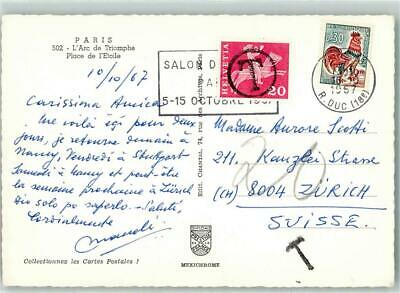 PARIS
502 - L'Arc de Triomphe
Place de l'Etoile
10/10/67
Carissima Amica,
me voilà ici pour deux
jours, je retourne demain à
Nancy, Vendredi à Stuttgart
Samedi à Nancy et peut-être
la semaine prochaine à Zürich
din solo per saperlo. Saluti,
Cordialmente
Collectionnez les Cartes Postales !
Edit. Chantal, 74, rue des Archives, Paris
MEXICHROME
SALON D
5-15 OCTOBRE 1967
T
HELVETIA
20
0,30
1967
R. DUC (18e)
Madame Aurore Scotti
211. Kanzlei Strasse
(CH) 8004 ZÜRICH
SUISSE.
20
T